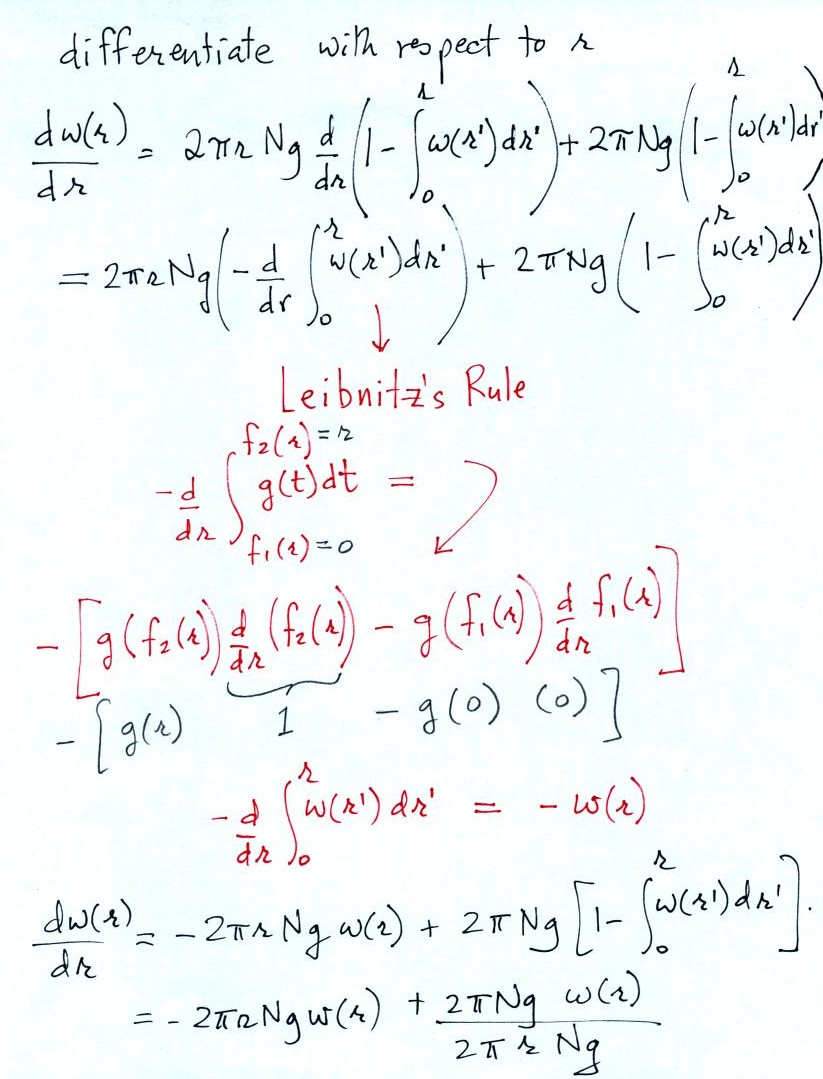 differentiate with respect to r
dw(r)/dr = 2πr Ng d/dr (1 - ∫₀ʳ w(r')dr') + 2πNg (1 - ∫₀ʳ w(r')dr')
= 2πrNg (- d/dr ∫₀ʳ w(r')dr') + 2πNg (1 - ∫₀ʳ w(r')dr')
↓
Leibnitz's Rule
- d/dr ∫_{f₁(r)=0}^{f₂(r)=r} g(t)dt =
- [g(f₂(r)) d/dr (f₂(r)) - g(f₁(r)) d/dr f₁(r)]
- [g(r) 1 - g(0) (0)]
- d/dr ∫₀ʳ w(r') dr' = - w(r)
dw(r)/dr = - 2πr Ng w(r) + 2πNg [1 - ∫₀ʳ w(r')dr'].
= - 2πrNg w(r) + 2πNg w(r) / 2πr Ng